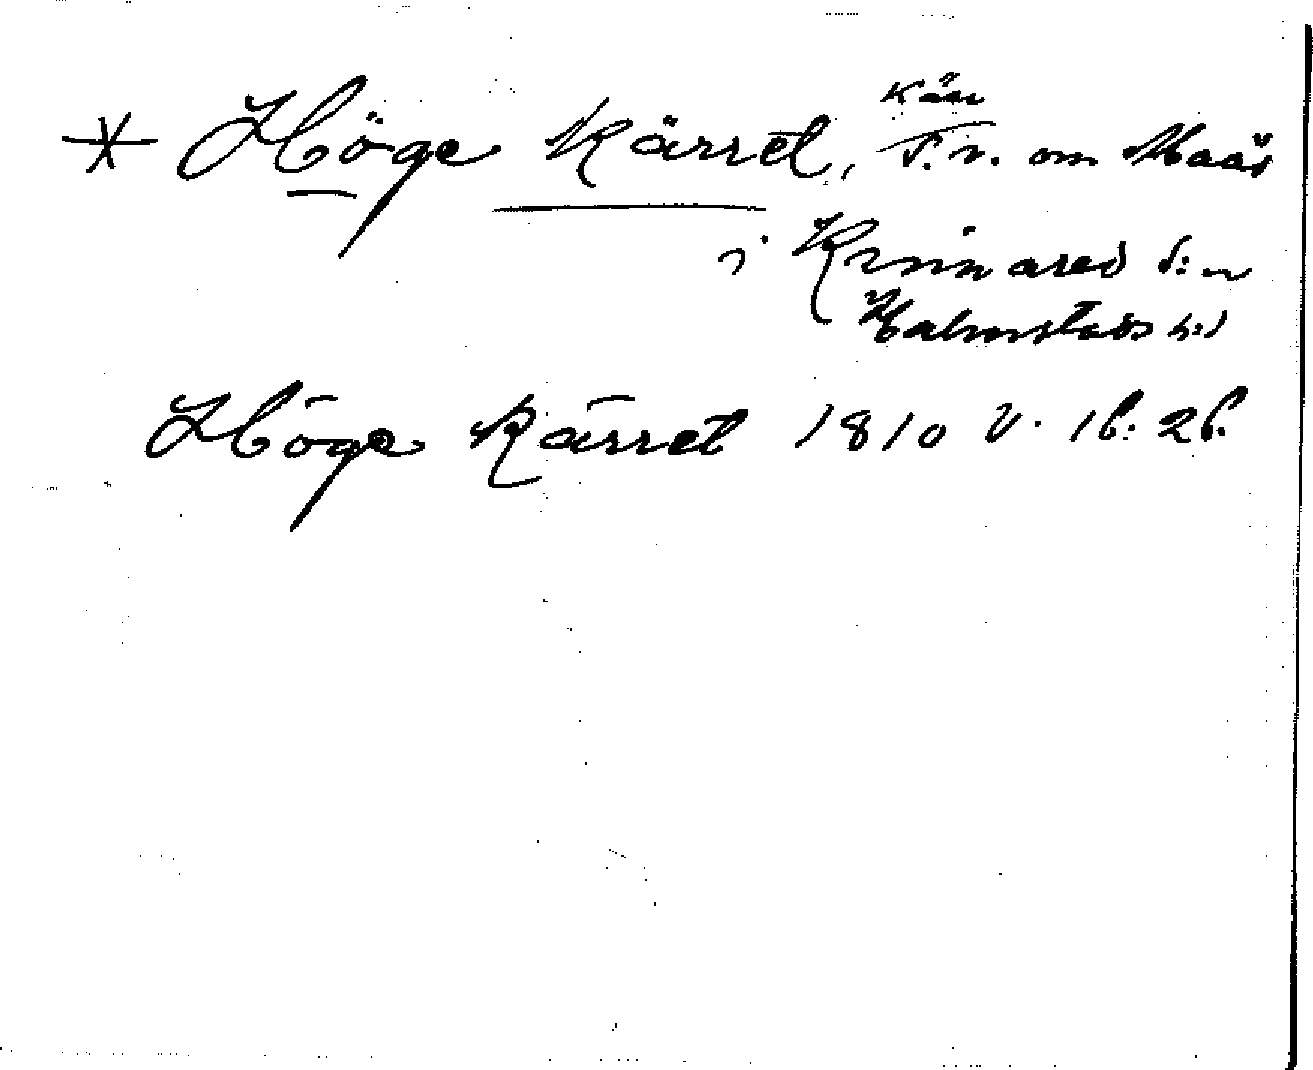 * Höge Kärret, Kärr S.v. om Maås
i Kinnared s:n
Halmstads h:d
Höge Kärret 1810 V. 16: 26.